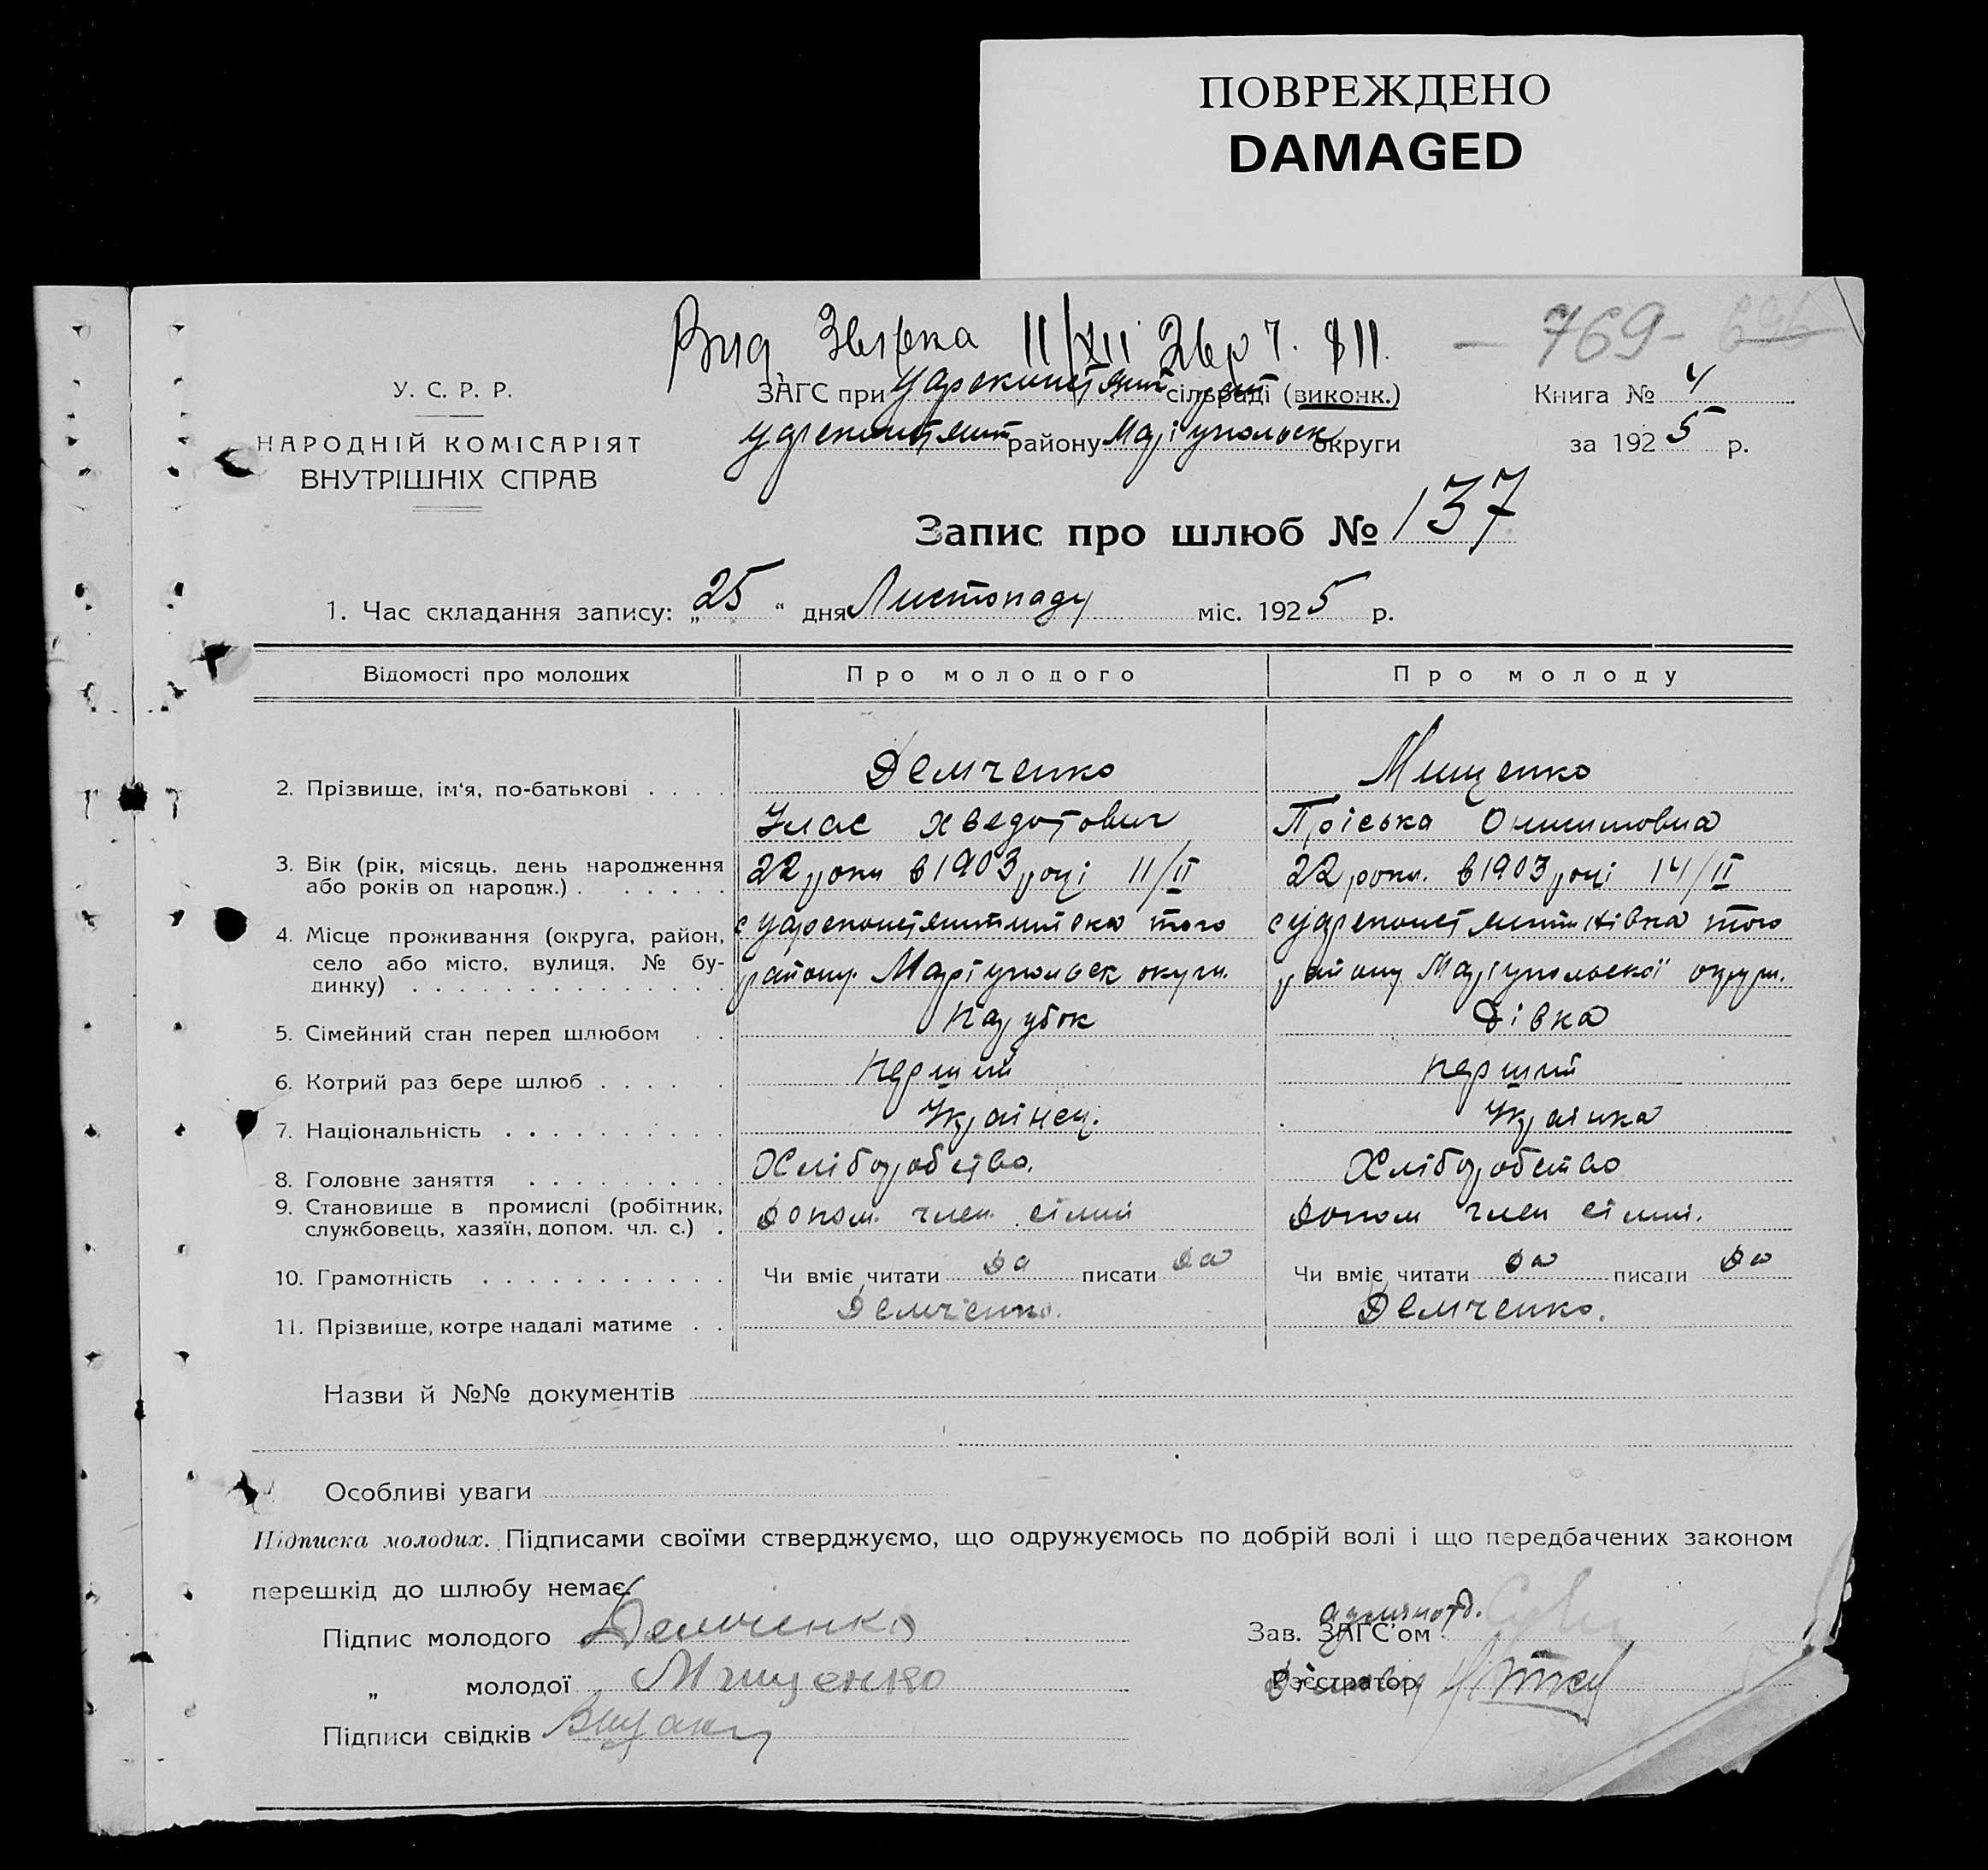 ПОВРЕЖДЕНО
DAMAGED
Вид. 11/XII
— 769 –
У. С. Р. Р.
НАРОДНІЙ КОМІСАРІЯТ
ВНУТРІШНІХ СПРАВ
ЗАГС при сільраді (виконк.)
району Маріупольськ округи
Книга № 4
за 1925 р.
Запис про шлюб № 137
1. Час складання запису: „25“ дня Листопаду міс. 1925 р.
Відомості про молодих Про молодого Про молоду
2. Прізвище, ім'я, по-батькові . . . . Демченко Мищенко
Улас Хведотович Пріська Онисимовна
3. Вік (рік, місяць, день народження
або років од народж.) . . . . . . 22 роки в 1903 році 11/II 22 роки. в 1903 році 14/II
4. Місце проживання (округа, район,
село або місто, вулиця, № бу-
динку) . . . . . . . . . . . . . .
того того
району Маріупольськ округи. району Маріупольської округи.
5. Сімейний стан перед шлюбом . . Парубок Дівка
6. Котрий раз бере шлюб . . . . . . перший перший
7. Національність . . . . . . . . . . Українец. Украінка
8. Головне заняття . . . . . . . . . Хліборобство. Хліборобство
9. Становище в промислі (робітник,
службовець, хазяїн, допом. чл. с.) . допом. член. сімьи допом член сімьи.
10. Грамотність . . . . . . . . . . . Чи вміє читати да писати да Чи вміє читати да писати да
11. Прізвище, котре надалі матиме . . Демченко. Демченко.
Назви й №№ документів
Особливі уваги
Підписка молодих. Підписами своїми стверджуємо, що одружуємось по добрій волі і що передбачених законом
перешкід до шлюбу немає.
Підпис молодого Демченко
„ молодої Мищенко
Підписи свідків
Зав. ЗАГС'ом
Реєстратор